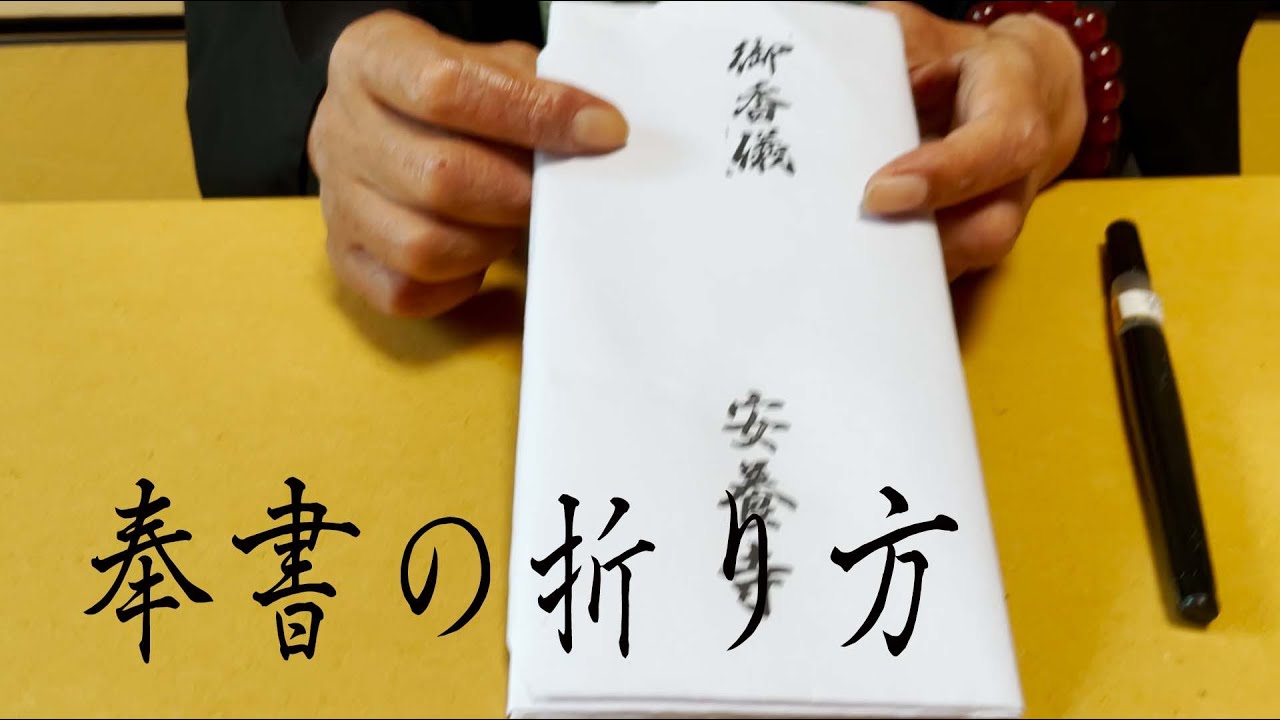 御香儀
安養寺
奉書の折り方